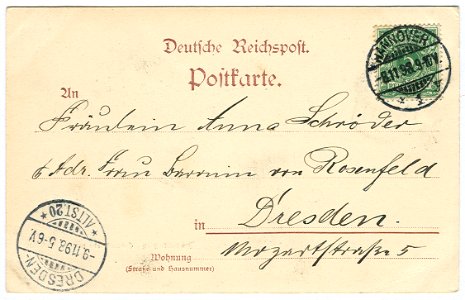 Deutsche Reichspost.
Postkarte.
HANNOVER
8.11.98.9-10V.
* 1 *
An
Fräulein Anna Schröder
Adr. Frau Baronin von Rosenfeld
in Dresden.
Mozartstraße 5
Wohnung
(Straße und Hausnummer)
DRESDEN-
ALTST.20
9.11.98.5-6V.